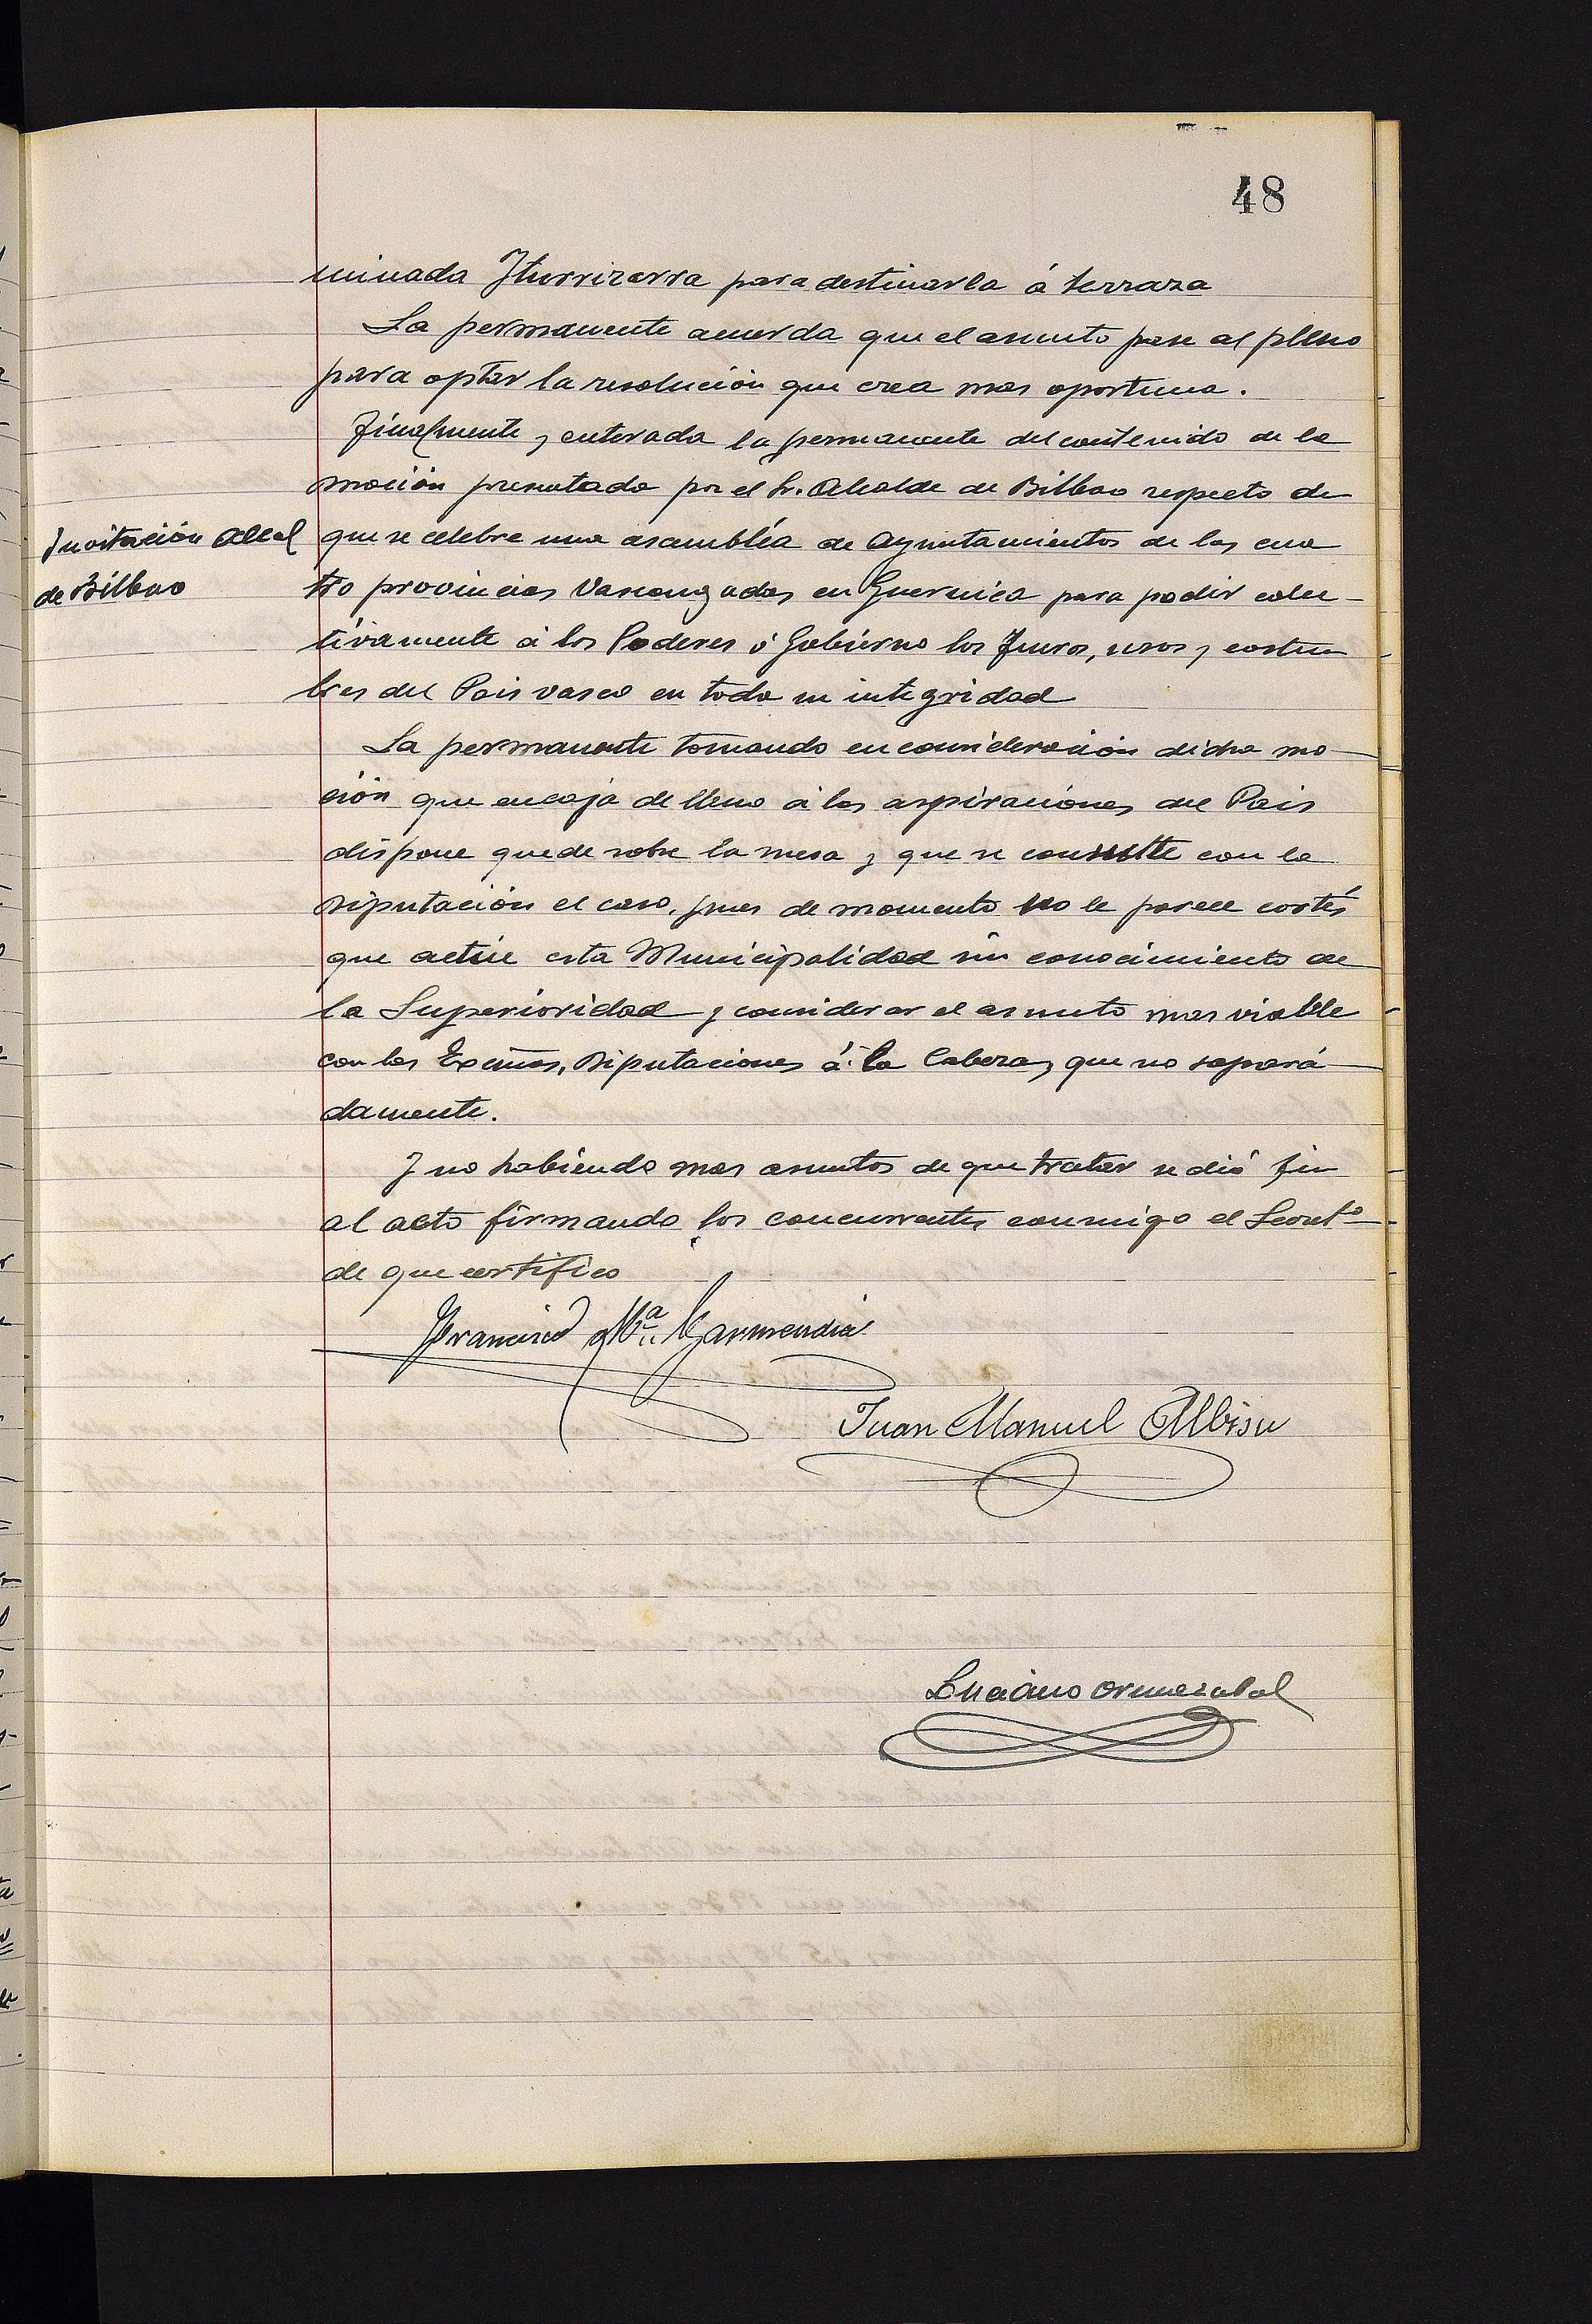 48
minada Yturrizarra para destinarla á terraza
La permanente acuerda que el asunto pase al pleno
para optar la resolución que crea mas oportuna.
Finalmente y enterada la permanente del contenido de la
moción presentada por el Sr. Alcalde de Bilbao respecto de
Invitación Alcal
que se celebre una asambléa de Ayuntamientos de las cua
de Bilbao
tro provincias Vascongadas en Guernica para pedir colec-
tivamente á los Poderes ó Gobierno los Fueros, usos y costum
bres del Pais vasco en toda su integridad
La permanente tomando en consideración dicha mo-
ción que encaja de lleno á las aspiraciones del Pais
dispone quede sobre la mesa y que se consulte con la
Diputación el caso, pues de momento no le parece cortés
que actúe esta Municipalidad sin conocimiento de
la Superioridad y considerar el asunto mas viable
con las Excmas. Diputaciones á la Cabeza, que no separá
damente.
Y no habiendo mas asuntos de que tratar se dió fin
al acto firmando los concurrentes conmigo el Secretº
de que certifico
Francisco Mª Garmendia
Juan Manuel Albisu
Luciano Ormazabal